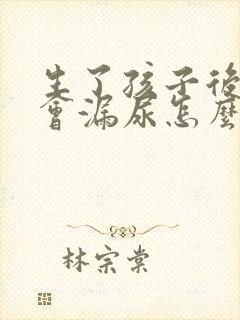 生了孩子後
會漏尿怎麼
林宗棠